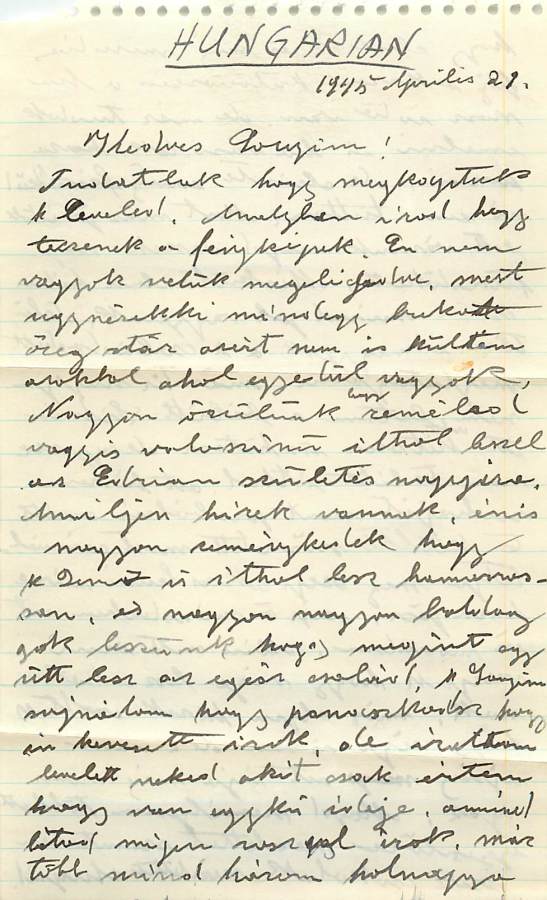 HUNGARIAN
1945 Április 29.
Kedves Louzim!
Tudatlak hogy megkaptuk
k leveled, Amelyben irod hogy
tecenek a feigkipek. En nem
vagyok velük megeligedve, mert
ugynézekki mind egy
öreg azért nem is küldtem
azokbol ahol egyedül vagyok,
Nagyon örülünk hogy remélsed
vagyis valoszinü itthol leszel
az Edrian születés napjára.
Amiljen hirek vannak, énis
nagyon reménykedek hogy
k is itthol lesz hamarros-
san, es nagyon nagyon boldog
gok leszünk hogy megint egy
ütt lesz az egész család, k Louzim
sajnálom hogy panaszkodsz hogy
in kevesett irok, de irattam
levelett neked akit csak értem
hogy van egykü ideje, amind
látod mijen roszul irok, már
több mind három holnapja